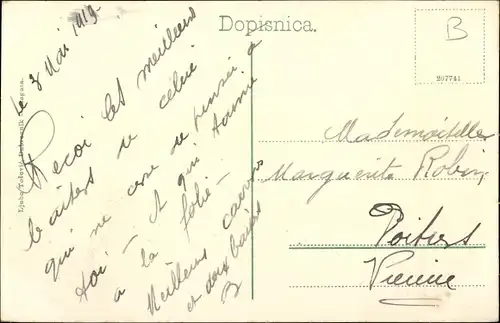 Dopisnica.
B
207741
le 3 Mai 1919
Reçoi les meilleurs
baisers de celui
qui ne cesse de penser à
toi — et qui t'aime
à la folie —
Meilleures caresses
et doux baisers
B
Mademoiselle
Marguerite Robin
Poitiers
Vienne